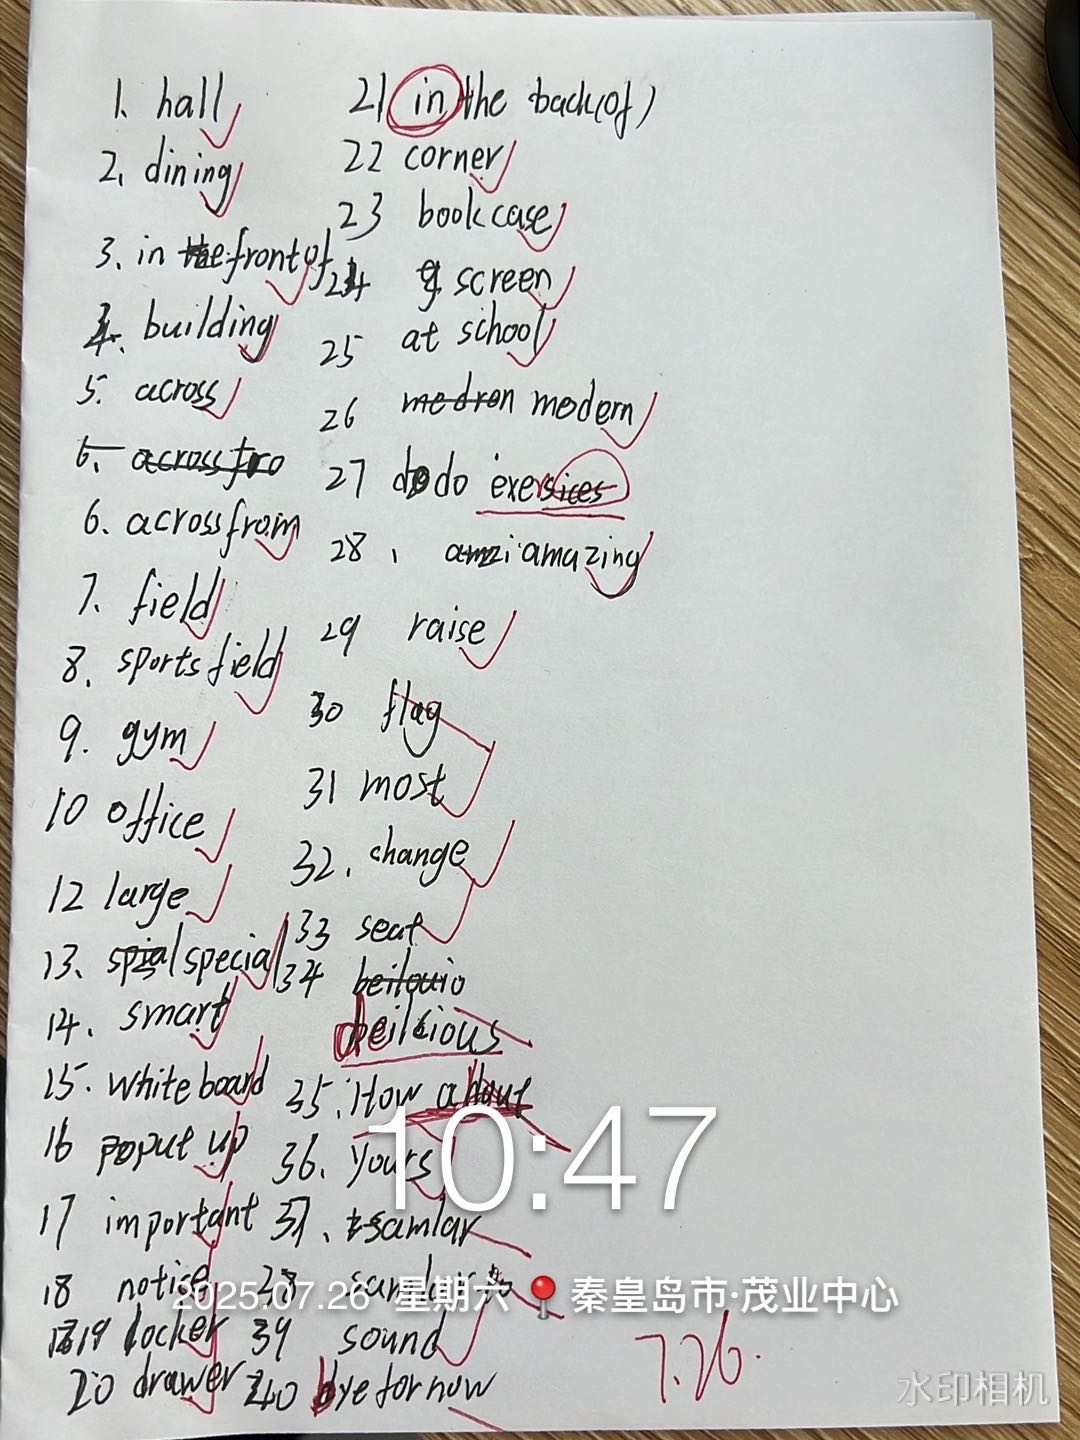 1. hall
2. dining
3. in front of
4. building
5. across
6. across fro
6. across from
7. field
8. sports field
9. gym
10 office
12 large
13. special
14. smart
15. whiteboard
16 put up
17 important
18 notise
19 locker
20 drawer
21 in the back(of)
22 corner
23 bookcase
24 screen
25 at school
26 medron modern
27 do exersices
28. amazing
29 raise
30 flag
31 most
32. change
33 seat
34
deilcious
35. How about
36. yours
37. samlar
38
39 sound
40 bye for now
7.26.
10:47
2025.07.26 星期六 秦皇岛市·茂业中心
水印相机